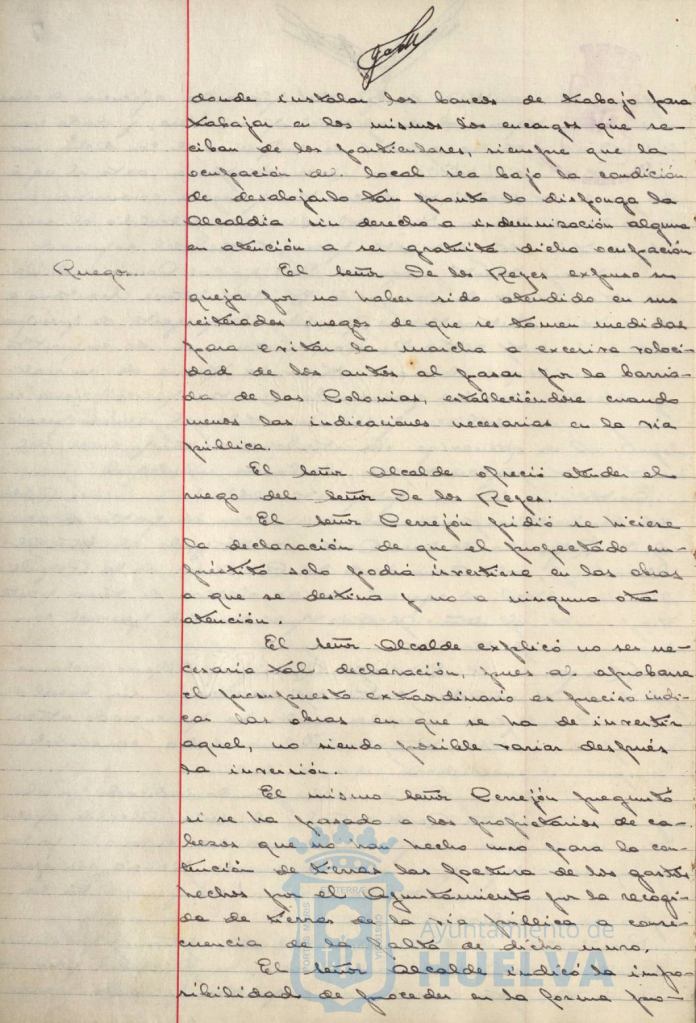 donde instalar los bancos de trabajo para
trabajar en los mismos los encargos que re-
ciban de los particulares, siempre que la
ocupación del local sea bajo la condición
de desalojarlo tan pronto lo disponga la
Alcaldia sin derecho a indemnización alguna
en atención a ser gratuita dicha ocupación
Ruegos.
El señor De los Reyes expuso su
queja por no haber sido atendido en sus
reiterados ruegos de que se tomen medidas
para evitar la marcha a excesiva veloci-
dad de los autos al pasar por la barria-
da de las Colonias, estableciéndose cuando
menos las indicaciones necesarias en la via
pública.
El señor Alcalde ofreció atender el
ruego del señor De los Reyes.
El señor Cerrejón pidió se hiciese
la declaración de que el proyectado em-
préstito solo podrá invertirse en las obras
a que se destina y no a ninguna otra
atención.
El señor Alcalde explicó no ser ne-
cesaria tal declaración, pues al aprobarse
el presupuesto extraordinario es preciso indi-
car las obras en que se ha de invertir
aquel, no siendo posible variar después
la inversión.
El mismo señor Cerrejón preguntó
si se ha pasado a los propietarios de ca-
bezos que no han hecho muro para la con-
tención de tierras las factura de los gastos
hechos por el Ayuntamiento por la recogi-
da de tierras de la via pública a conse-
cuencia de la falta de dicho muro.
El señor Alcalde indicó la impo-
sibilidad de proceder en la forma pro-
Ayuntamiento de
HUELVA